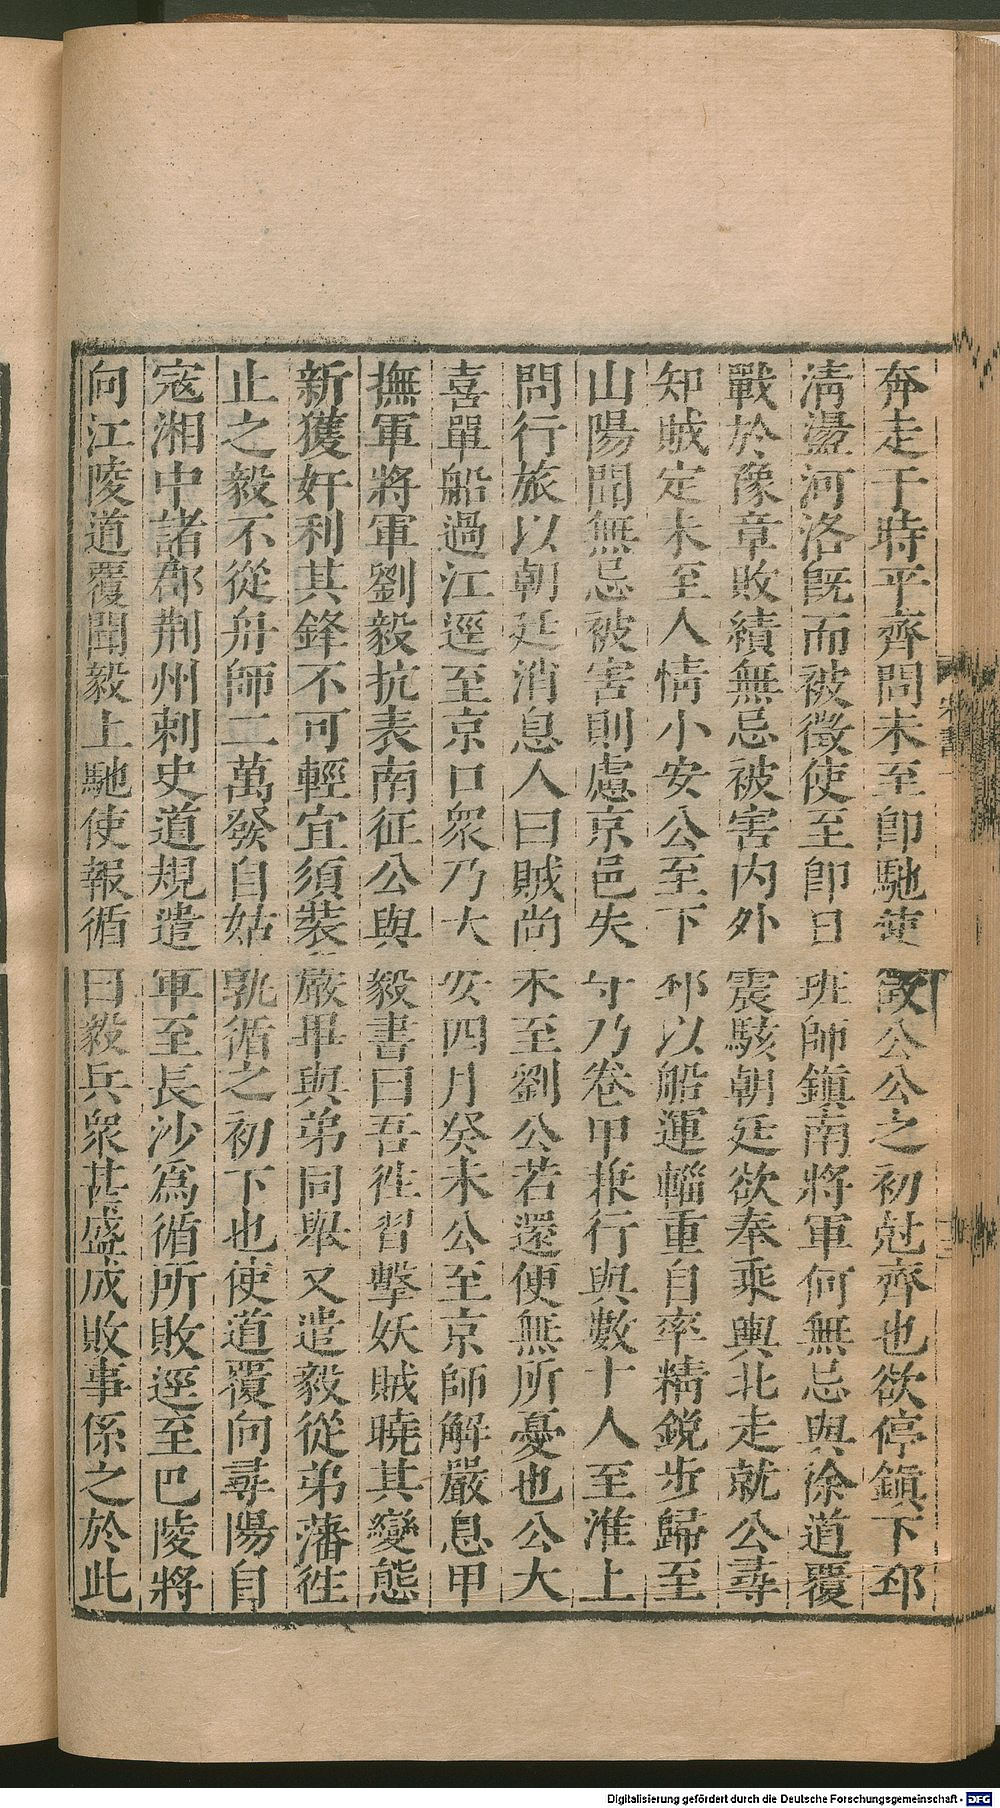 奔走于時平齊問未至卽馳使徵公公之初尅齊也欲停鎭下邳
淸盪河洛旣而被徵使至卽日班師鎭南將軍何無忌與徐道覆
戰於豫章敗績無忌被害內外震駭朝廷欲奉乘輿北走就公尋
知賊定未至人情小安公至下邳以船運輜重自率精銳步歸至
山陽聞無忌被害則慮京邑失守乃卷甲兼行與數十人至淮上
問行旅以朝廷消息人曰賊尚未至劉公若還便無所憂也公大
喜單船過江逕至京口衆乃大安四月癸未公至京師解嚴息甲
撫軍將軍劉毅抗表南征公與毅書曰吾徃習擊妖賊曉其變態
新獲奸利其鋒不可輕宜須裝嚴畢與弟同舉又遣毅從弟藩徃
止之毅不從舟師二萬發自姑孰循之初下也使道覆向尋陽自
寇湘中諸郡荆州刺史道規遣軍至長沙爲循所敗逕至巴陵將
向江陵道覆聞毅上馳使報循曰毅兵衆甚盛成敗事係之於此
宋書一
Digitalisierung gefördert durch die Deutsche Forschungsgemeinschaft - DFG